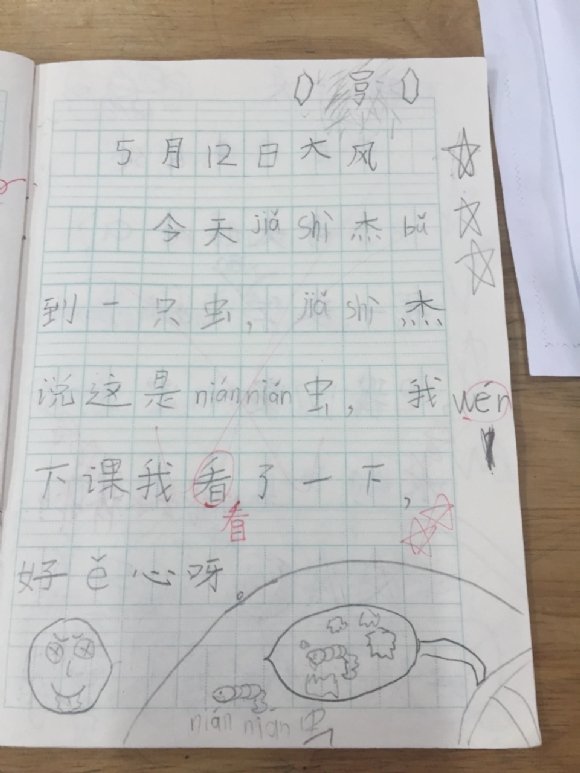 写
5月12日大风
今天jiǎ shì 杰 bǔ
到一只虫，jiǎ shì 杰
说这是nián nián虫，我wén
下课我看了一下，
看
好ě心呀。
nián nián 虫